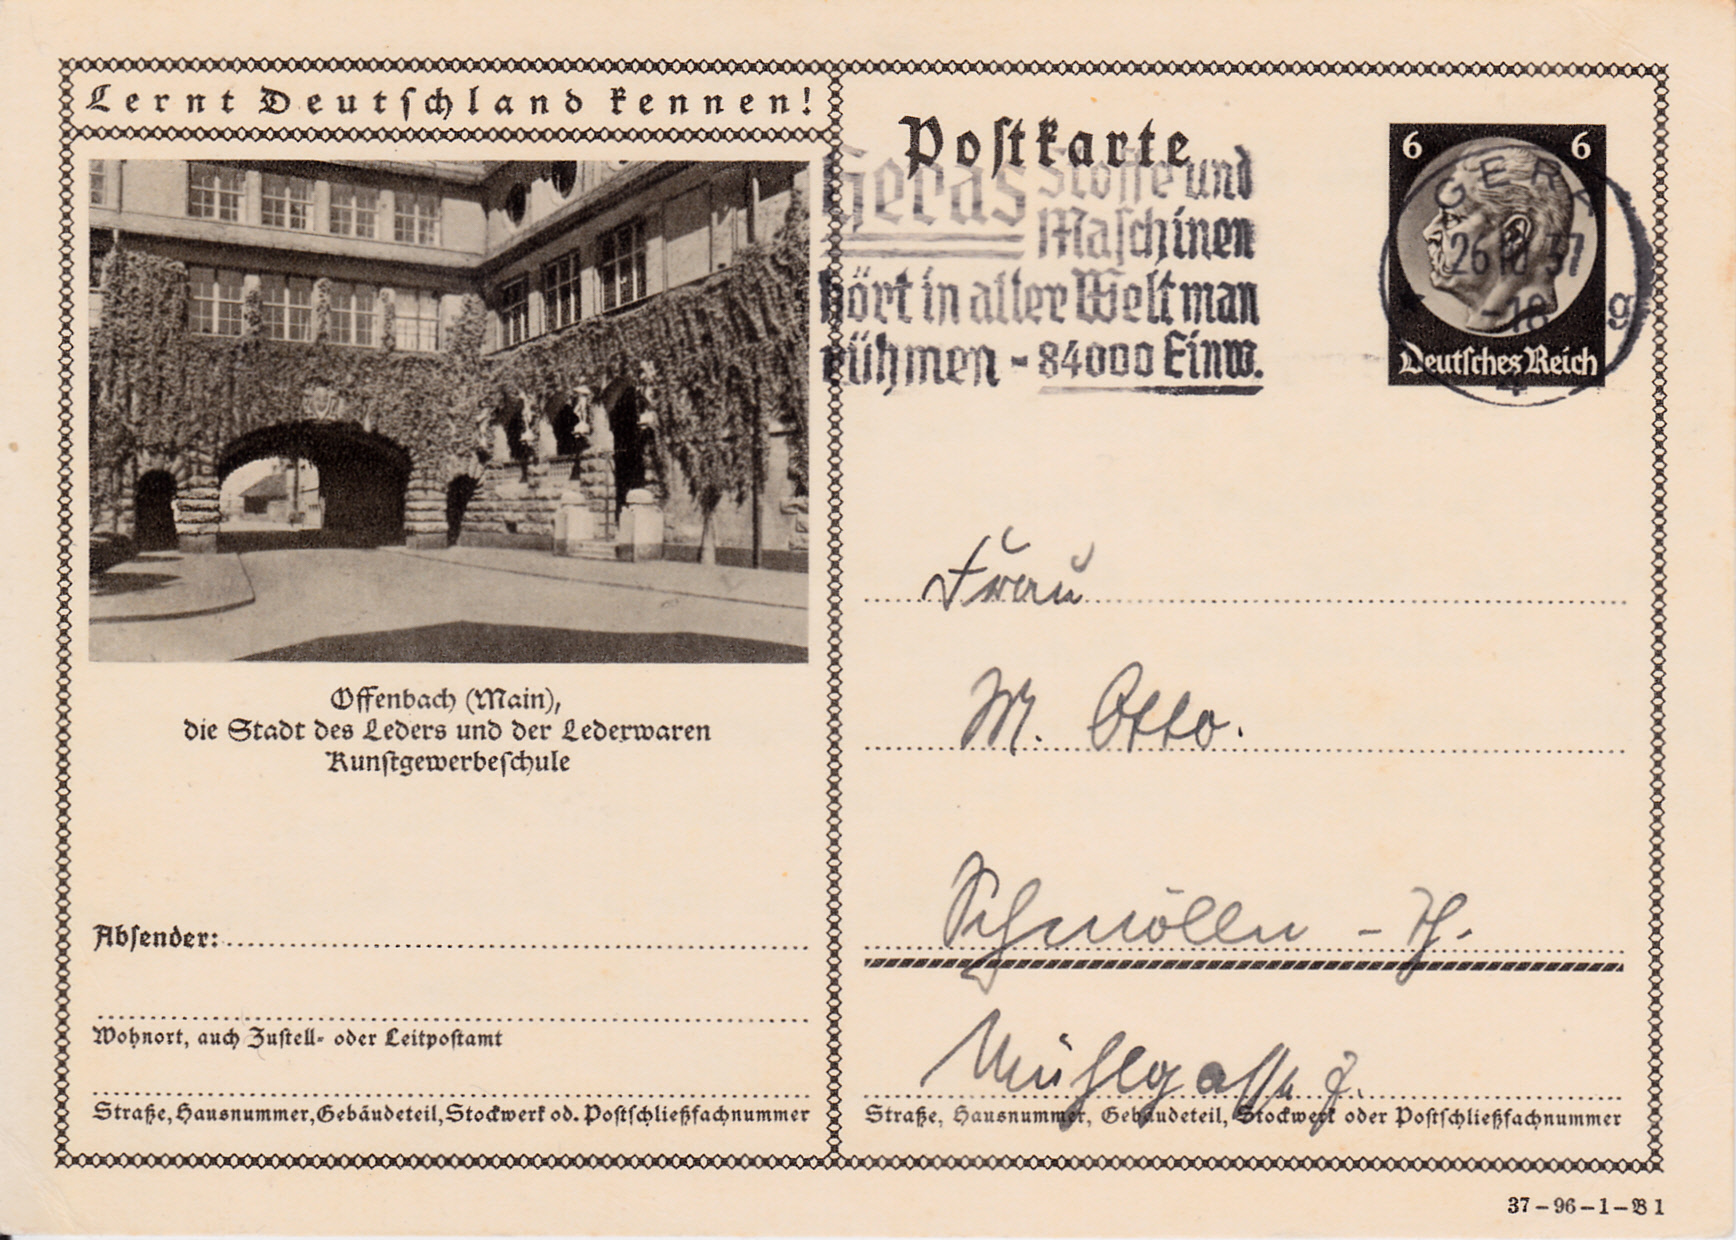 Lernt Deutschland kennen!
Offenbach (Main),
die Stadt des Leders und der Lederwaren
Kunstgewerbeschule
Absender:
Wohnort, auch Zustell- oder Leitpostamt
Straße, Hausnummer, Gebäudeteil, Stockwerk od. Postschließfachnummer
Postkarte
Geras Stoffe und
Maschinen
hört in aller Welt man
rühmen - 84000 Einw.
6 6
Deutsches Reich
GERA
26 10 37
-18
g
4
Frau
M. Otto.
Schmölln - Th.
Mühlgasse
Straße, Hausnummer, Gebäudeteil, Stockwerk oder Postschließfachnummer
37-96-1-B1